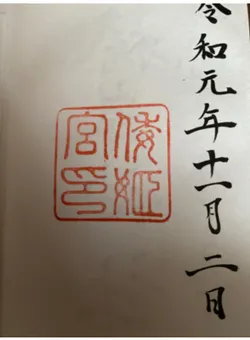 令和元年十一月二日
倭姫宮印